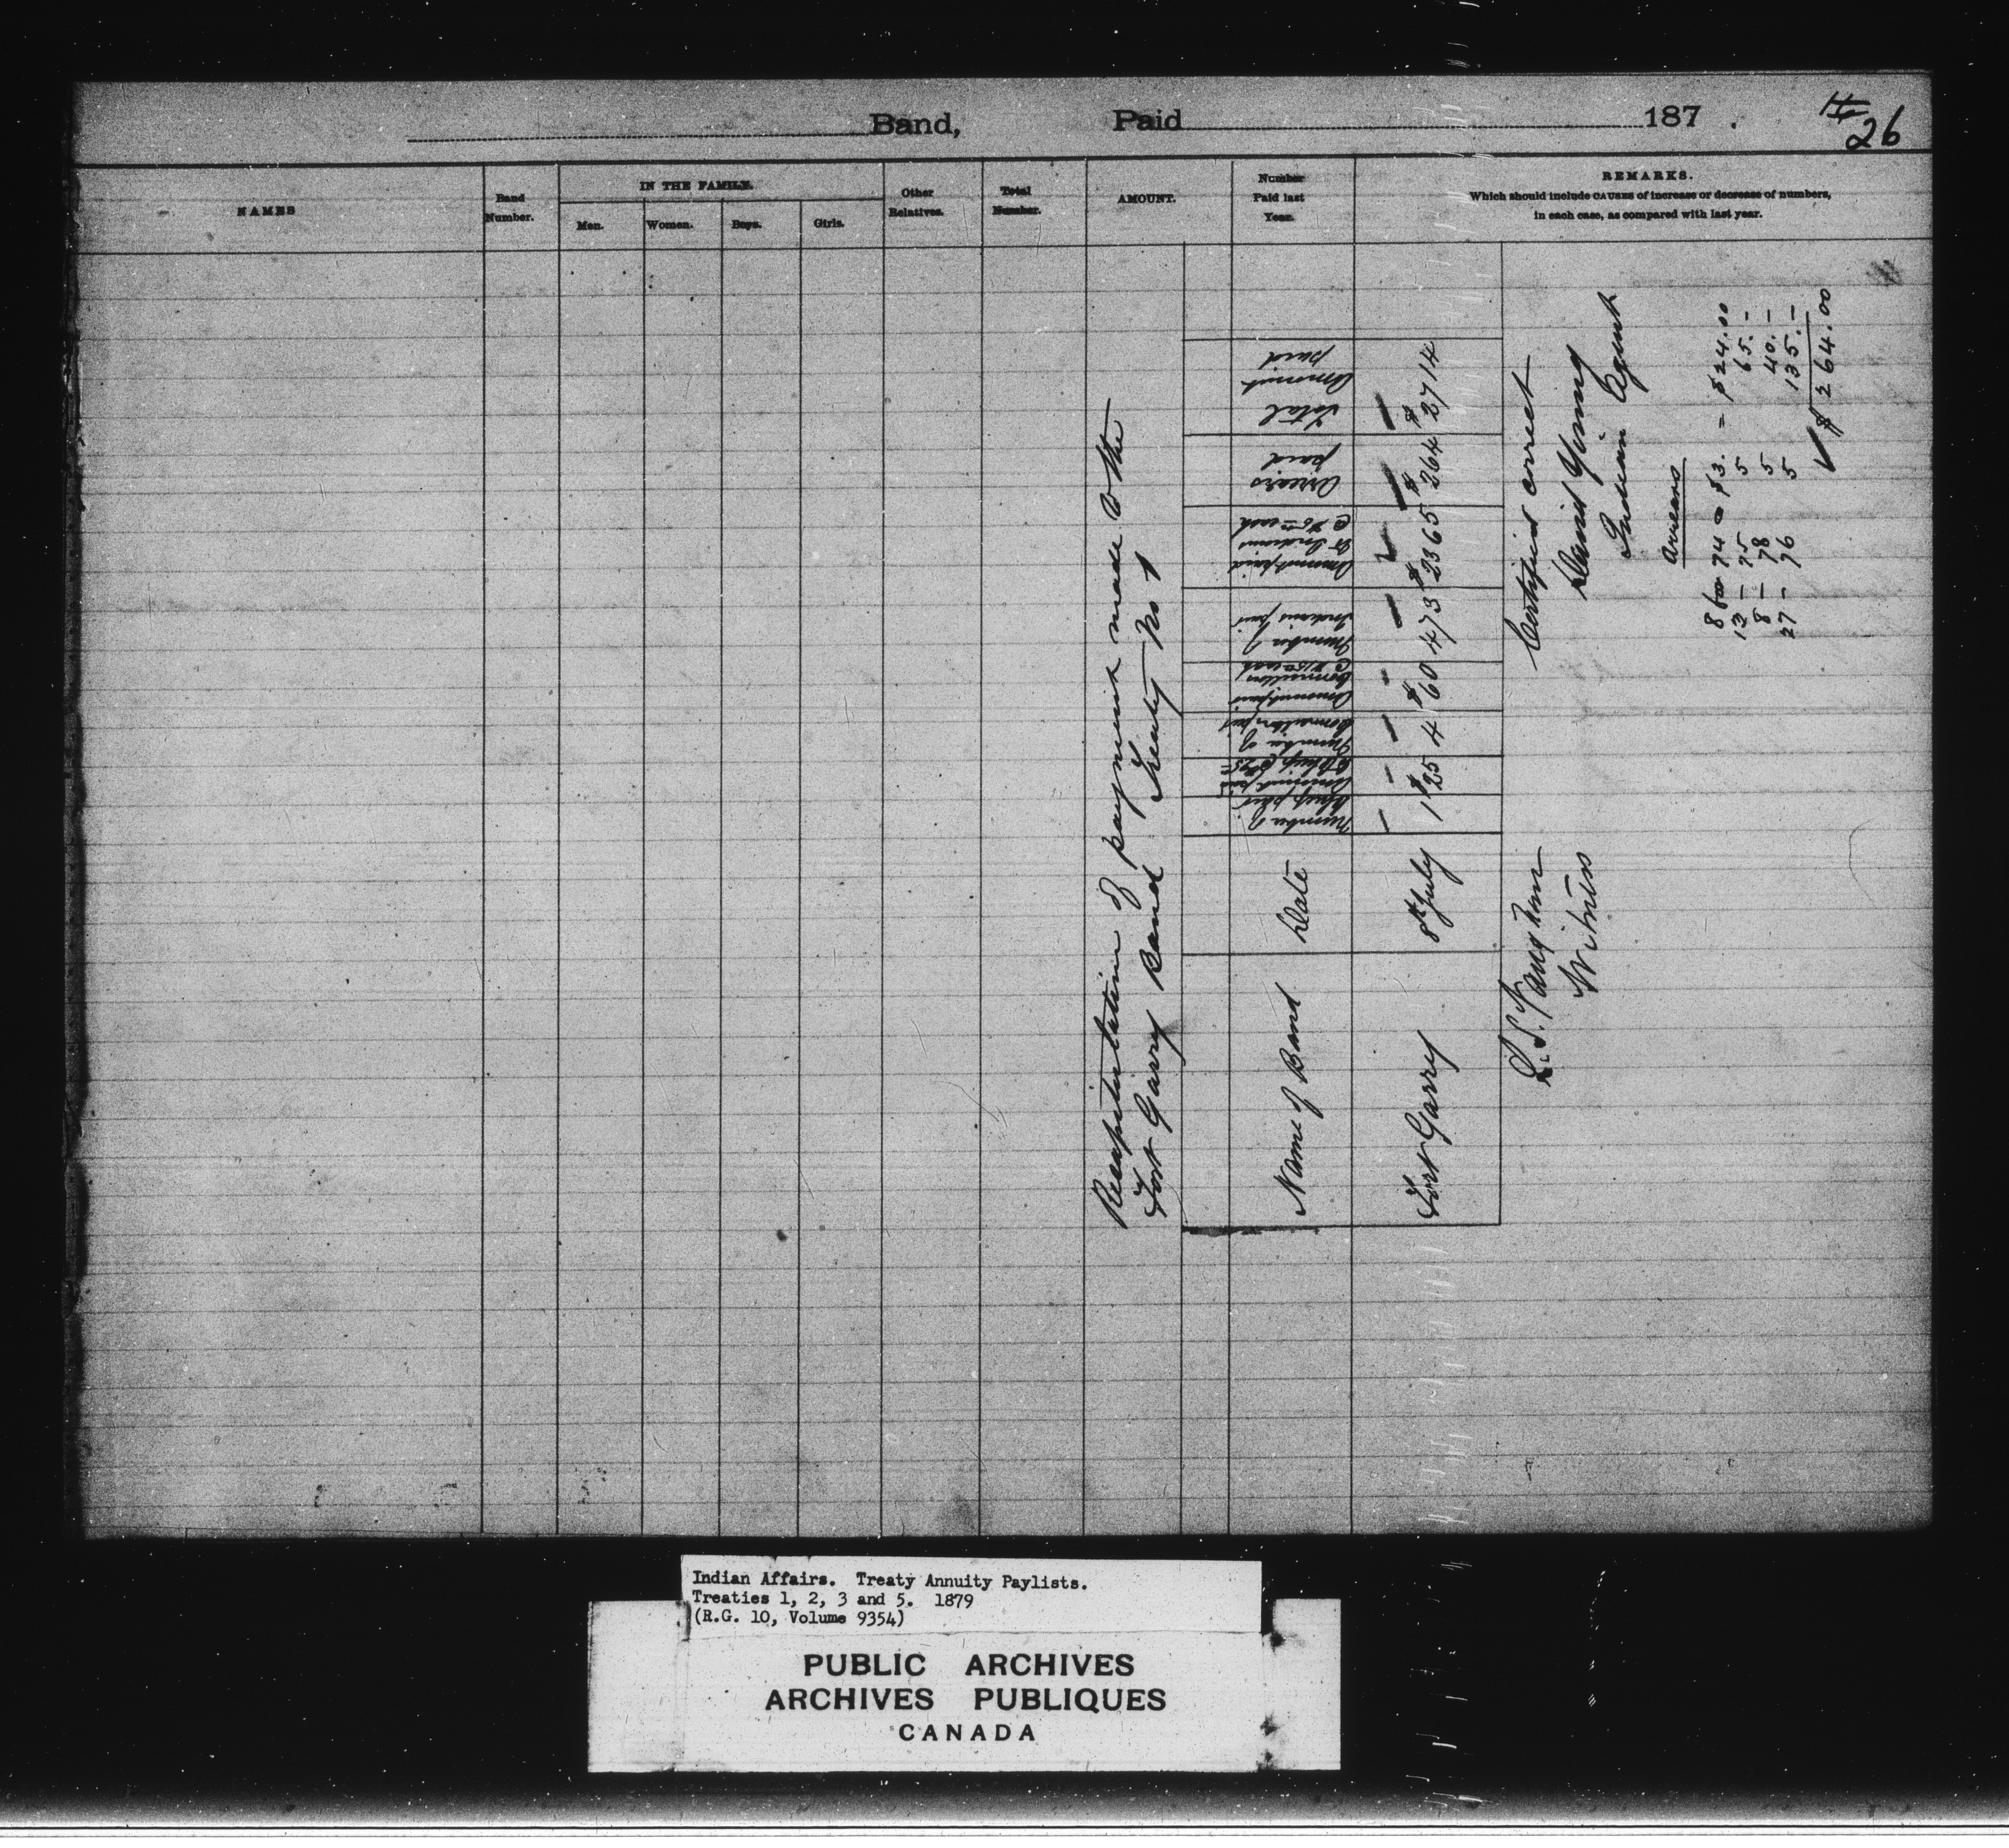 Band, Paid 187 .
26
NAMES
Band Number.
IN THE FAMILY.
Men.
Women.
Boys.
Girls.
Other Relatives.
Total Number.
AMOUNT.
Number Paid last Year.
REMARKS.
Which should include CAUSES of increase or decrease of numbers,
in each case, as compared with last year.
Recapitulation of payment made to the
Fort Garry Band Treaty No 1
Name of Band
Date
Number of Chiefs paid
Amount paid Chief @ $25
Number of Councillors paid
Amount paid Councillors @ $15 each
Number of Indians paid
Amount paid to Indians @ $5 each
Arrears paid
Total Amount paid
Fort Garry 8th July 1 $25 4 $60 473 $2365 $264 $2714
Certified correct
David Young
Indian Agent
Witness
Arrears
8 for 74 @ $3. = $24.00
13 - 75 5 65. -
8 - 78 5 40. -
27 - 76 5 135. -
$264.00
Indian Affairs. Treaty Annuity Paylists.
Treaties 1, 2, 3 and 5. 1879
(R.G. 10, Volume 9354)
PUBLIC ARCHIVES
ARCHIVES PUBLIQUES
CANADA